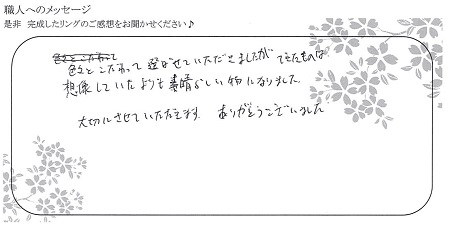 職人へのメッセージ
是非 完成したリングのご感想をお聞かせください♪
色々とこだわって
色々とこだわって選ばせていただきましたが できたものは
想像していたよりも素晴らしい物になりました。
大切にさせていただきます。 ありがとうございました